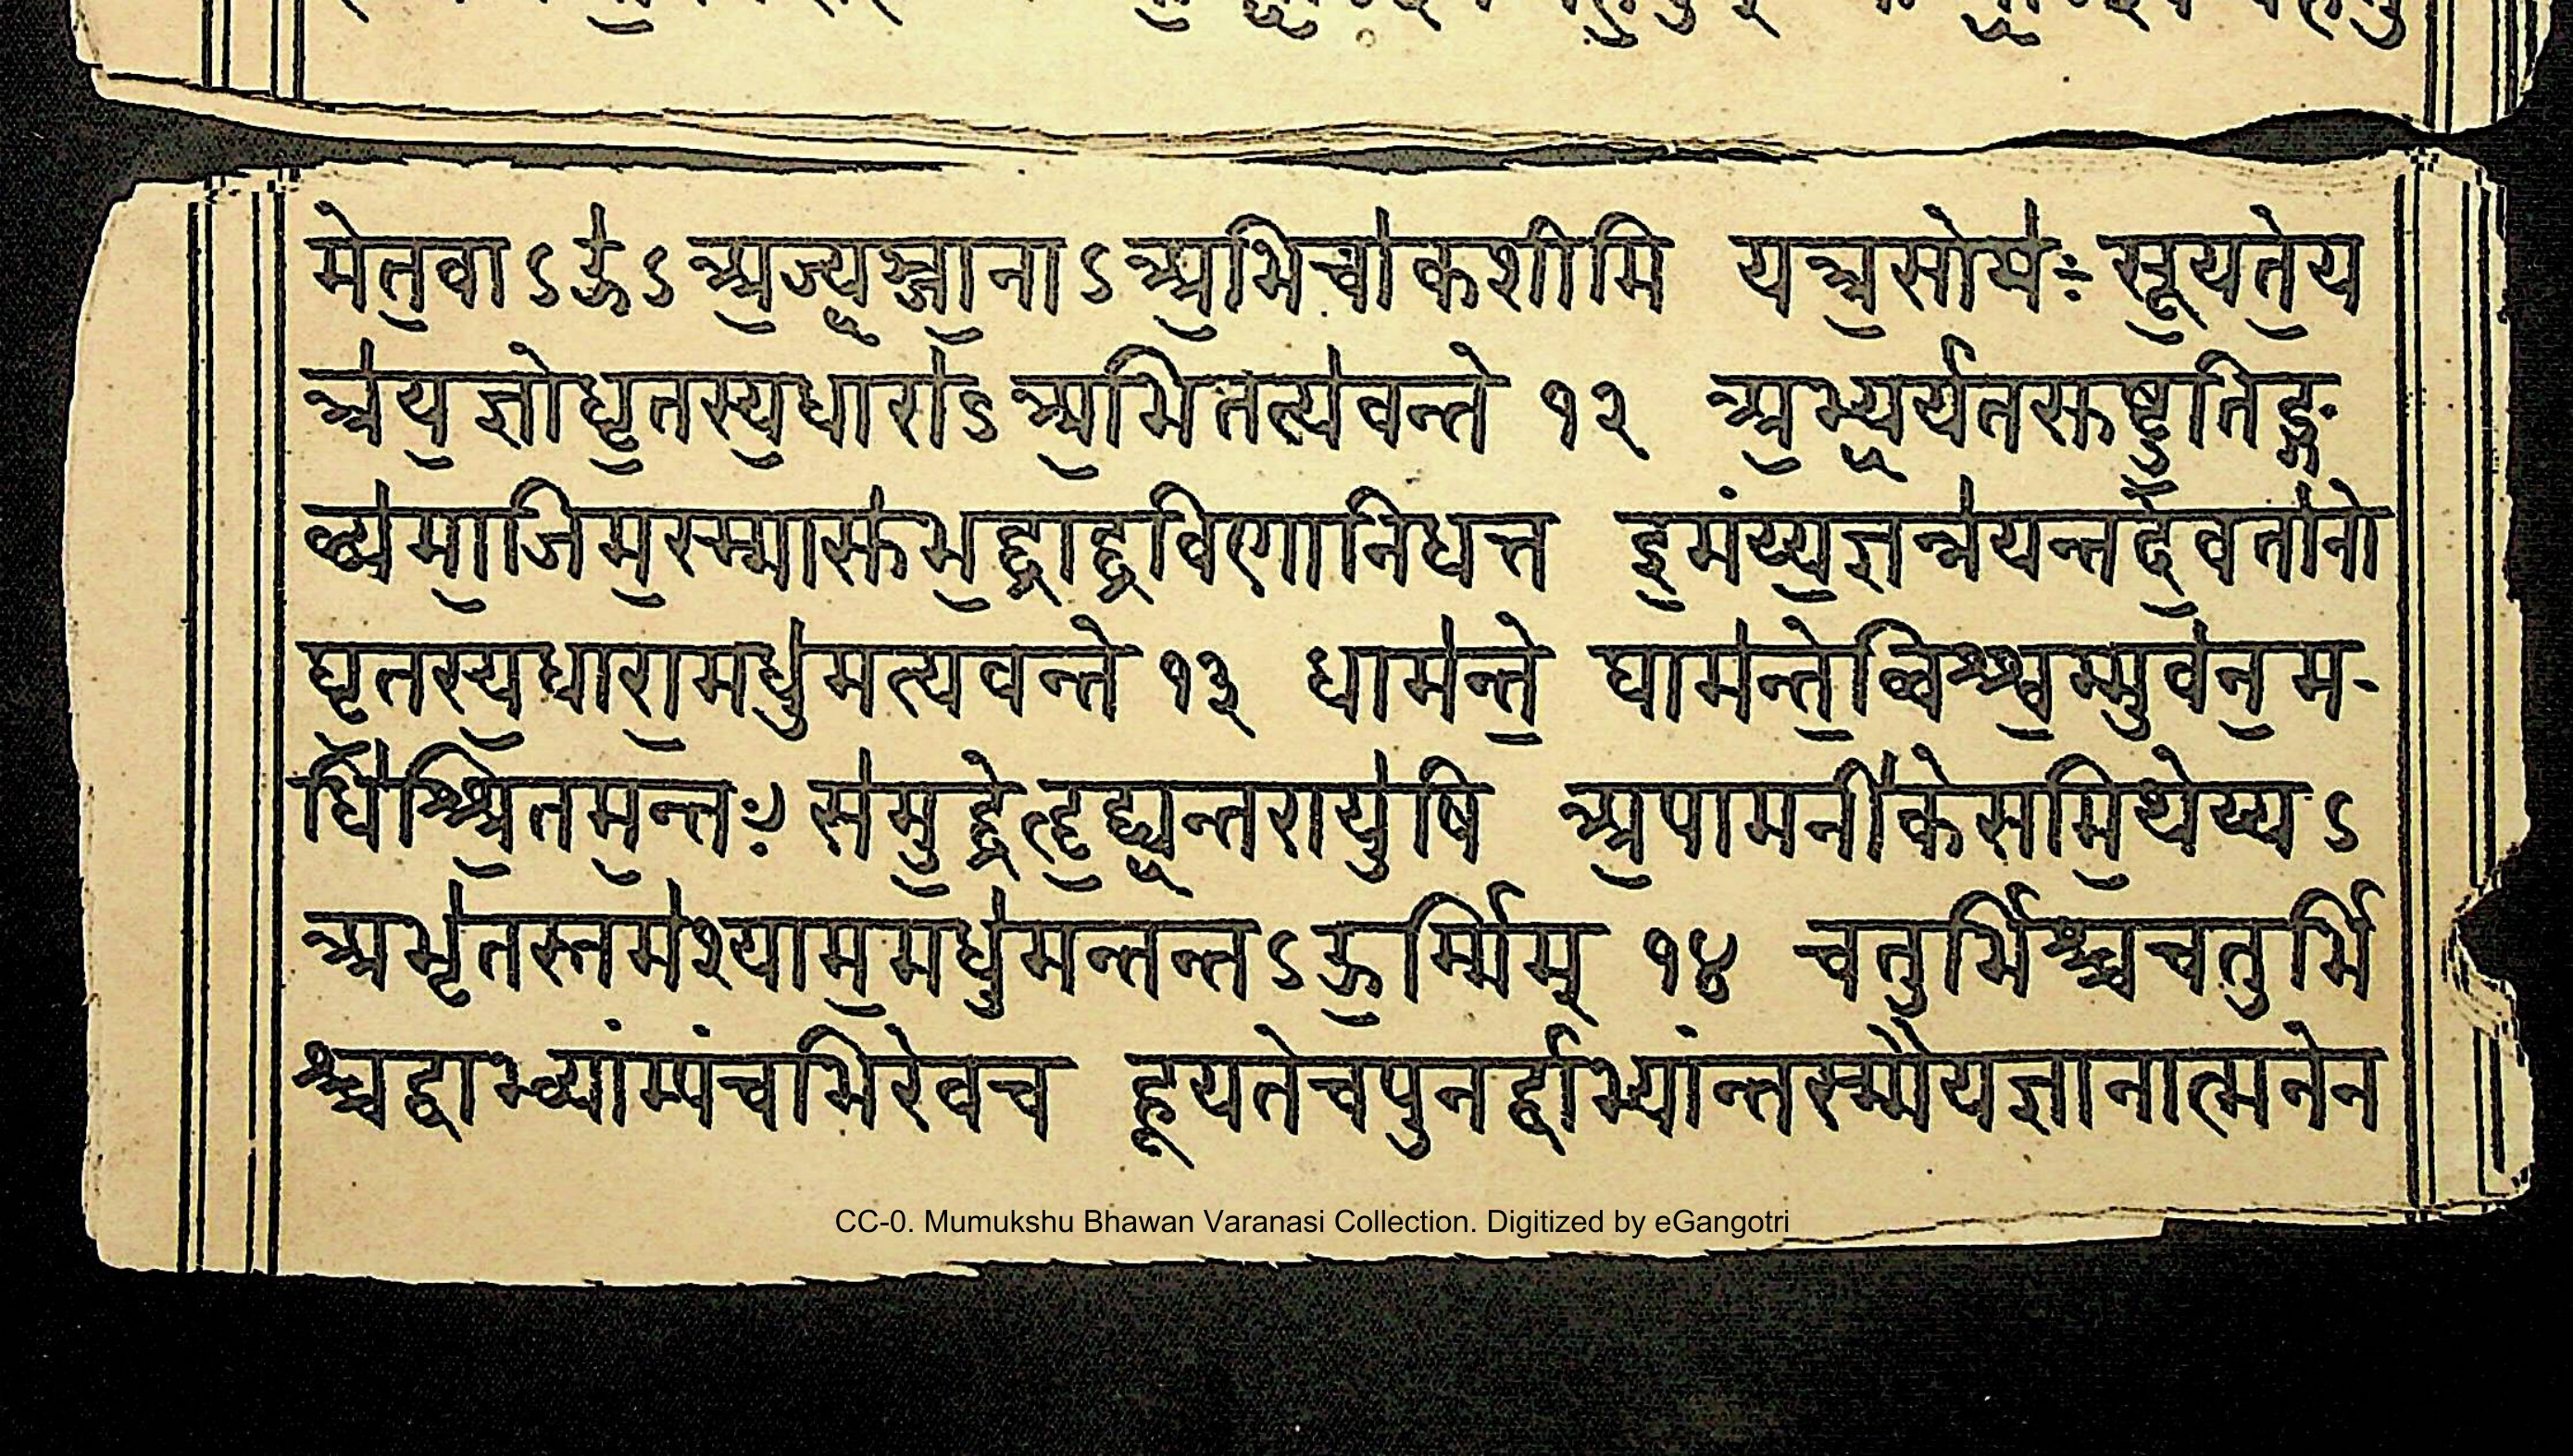 मेत॒वाऽउ॑ऽअ॒ज्ज्य॒ञ्जा॒नाऽअ॒भिचा॑कशीमि यत्र॒सोम॑ः सू॒यते॒य
त्र॑य॒ज्ञोघृ॒तस्य॒धारा॑ऽअ॒भितत्प॑वन्ते १२ अ॒भ्य॒र्षतसुष्टु॒तिङ्ग
व्य॑मा॒जिम॒स्म्मासु॑भ॒द्द्राद्द्रविणानिधत्त इ॒मंय्य॒ज्ञन्न॑यन्तदे॒वता॑नो
घृ॒तस्य॒धारा॒मधु॑मत्पवन्ते १३ धाम॑न्ते॒ धाम॑न्ते॒व्विश्श्व॒म्भुव॑न॒म-
धि॑श्श्रि॒तम॒न्तः स॑मु॒द्द्रेहृ॒द्द्य॒न्तरायु॑षि अ॒पामनी॑केसमि॒थेय्यऽ
आभृ॑तस्तम॑श्याम॒मधु॑मन्तन्तऽऊ॒र्म्मिम् १४ चतुर्भिश्च्चचतुर्भि
श्च्चद्वाभ्व्यांम्पंचभिरेवच हूयतेचपुनर्द्वाभ्यांन्तस्म्मैयज्ञानात्मनेन
CC-0. Mumukshu Bhawan Varanasi Collection. Digitized by eGangotri